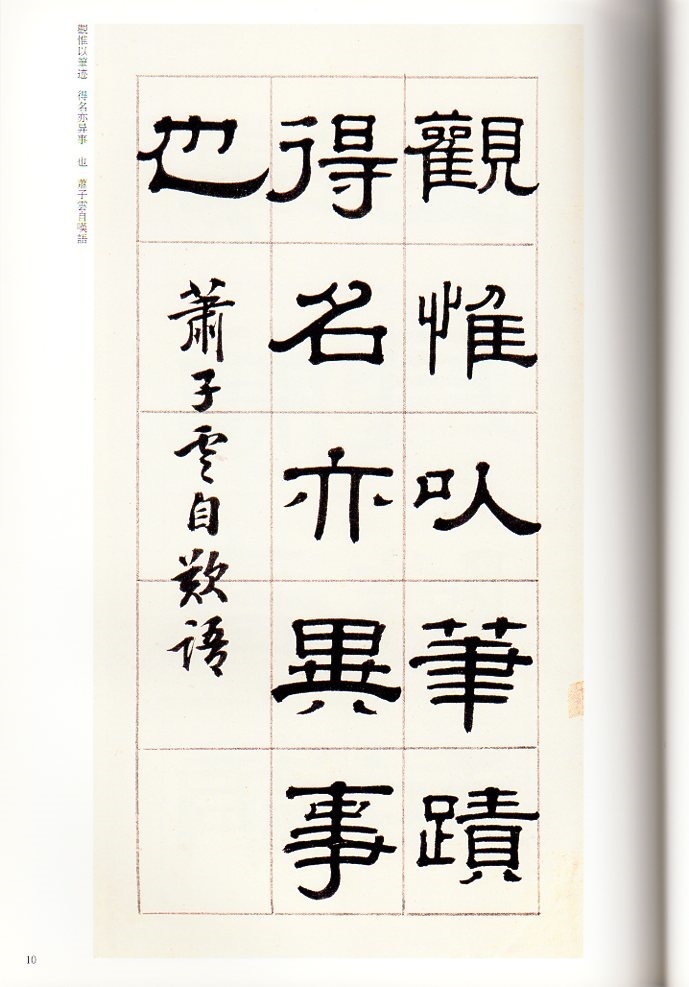 觀惟以筆蹟
得名亦異事
也
蕭子雲自歎語
觀惟以筆迹　得名亦异事　也　蕭子雲自嘆語
10